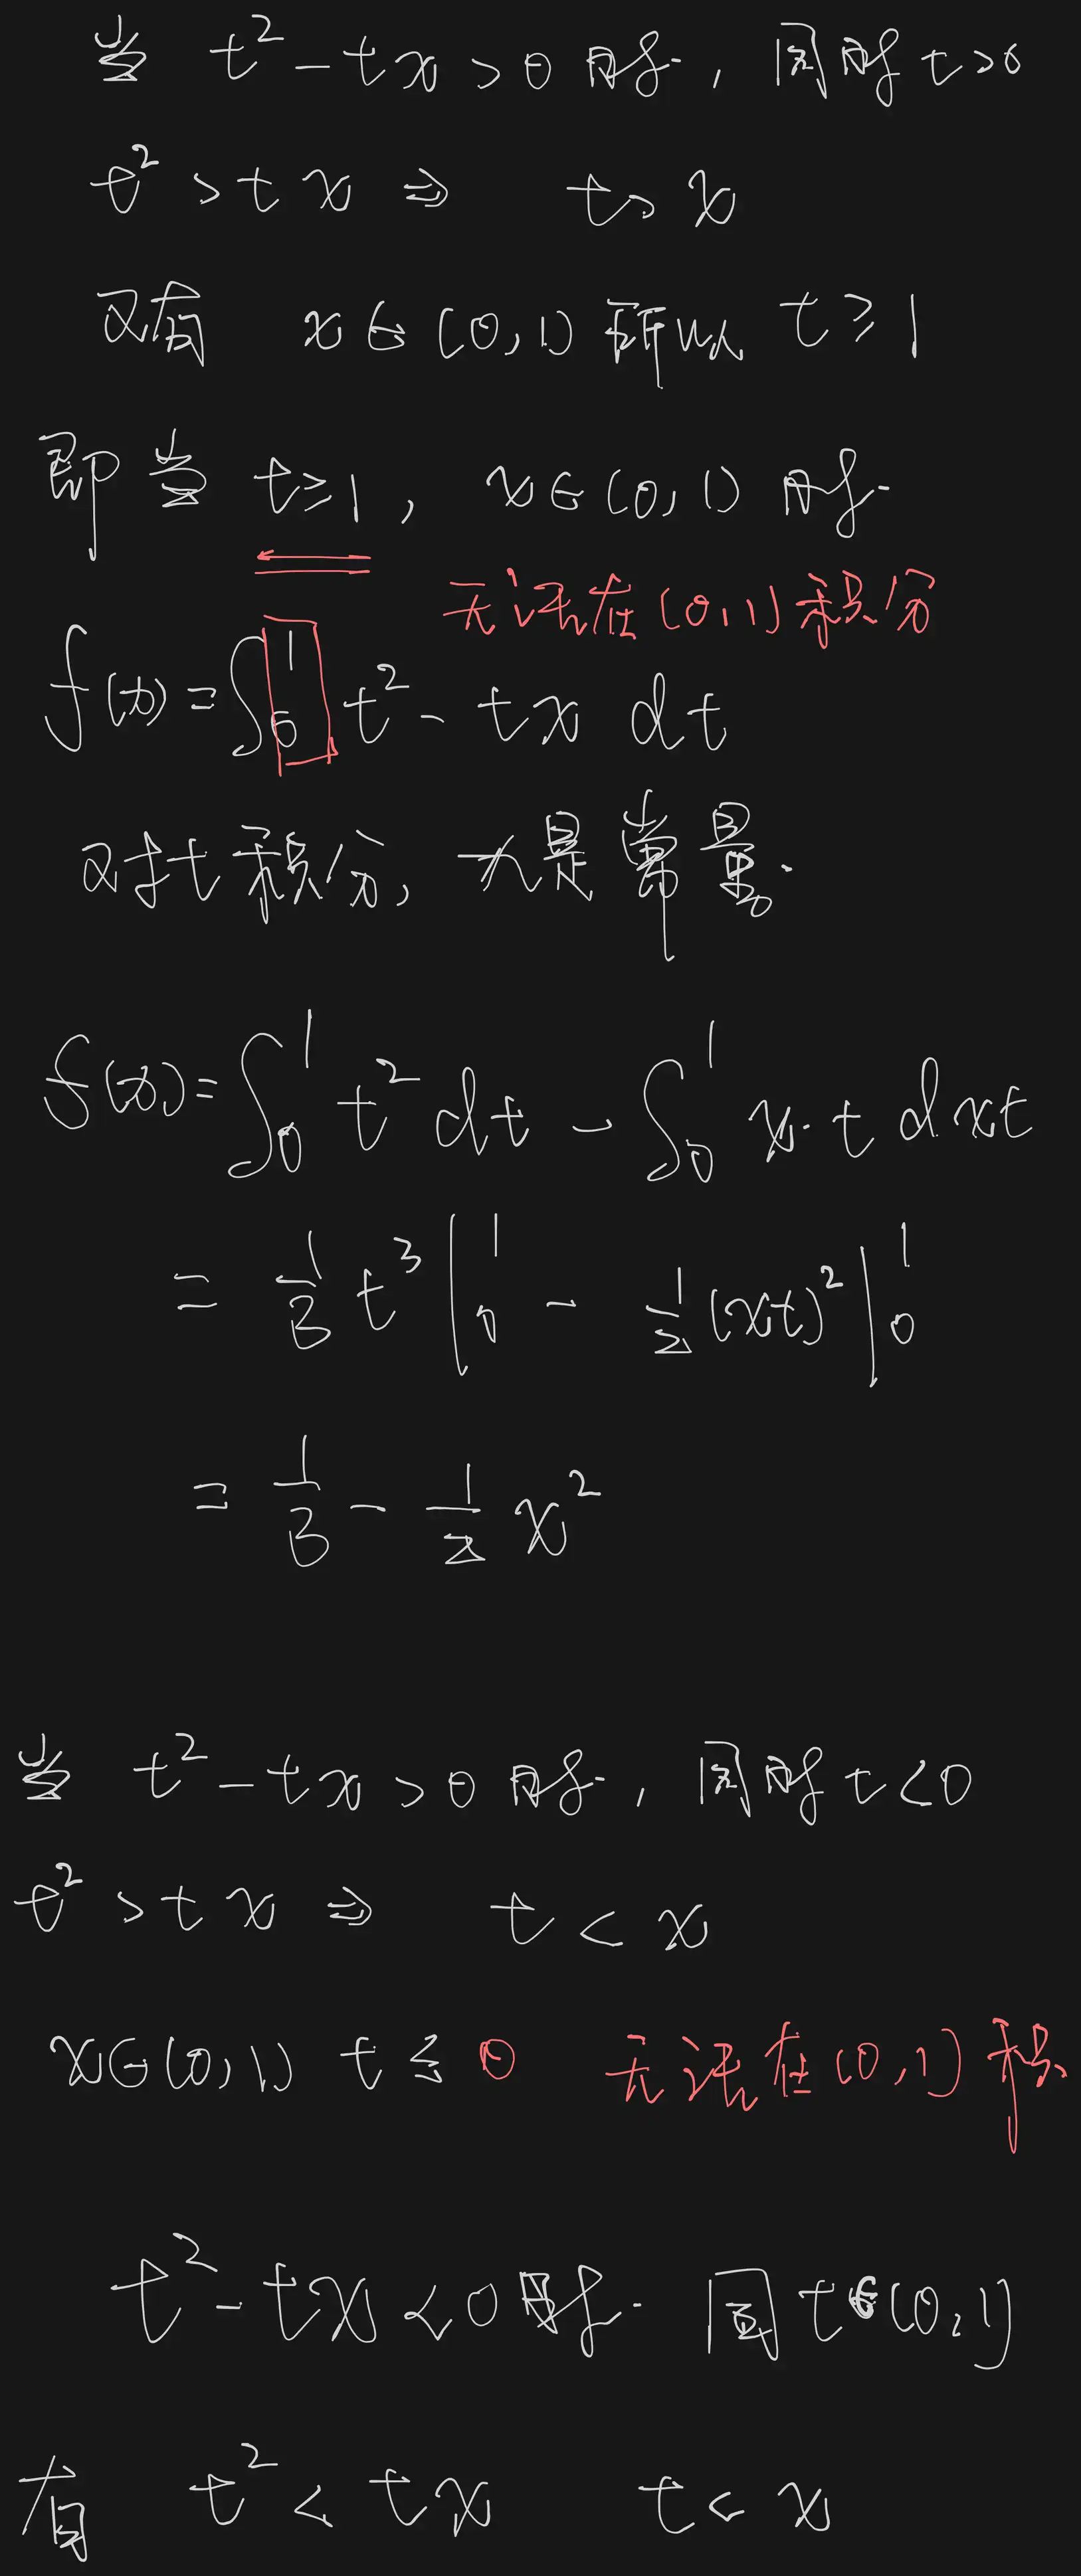 当 t² - tx > 0 时，同时 t > 0
t² > tx ⇒ t > x
又有 x∈(0,1) 所以 t ≥ 1
即当 t ≥ 1, x∈(0,1) 时
无法在(0,1)积分
f(x) = ∫₀¹ t² - tx dt
对t积分, x是常量.
f(x) = ∫₀¹ t² dt - ∫₀¹ x·t dxt
= 1/3 t³ |₀¹ - 1/2 (xt)² |₀¹
= 1/3 - 1/2 x²
当 t² - tx > 0 时，同时 t < 0
t² > tx ⇒ t < x
x∈(0,1) t ≤ 0 无法在(0,1)积
t² - tx < 0 时 t∈(0,1)
有 t² < tx t < x